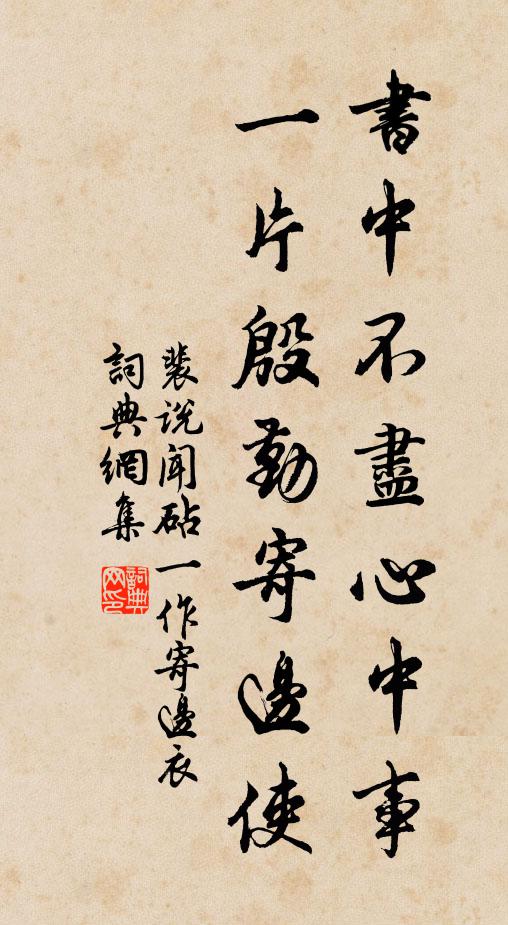 書中不盡心中事
一片殷勤寄邊使
裴說聞砧一作寄邊衣
詞典網集
詞典网印